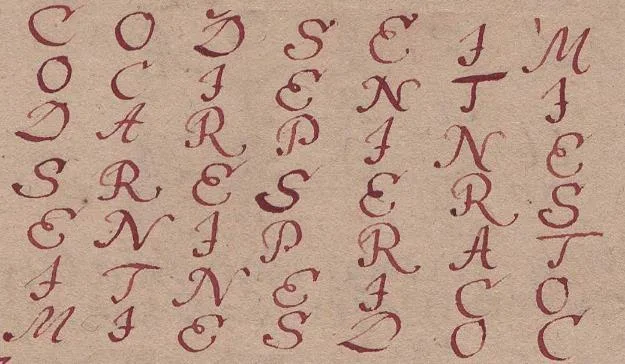 C O D S E I M
O C I E N T I
D A R P I N E
S R E S E R S
E N I P R A T
I T N E I C O
M I E S D O C